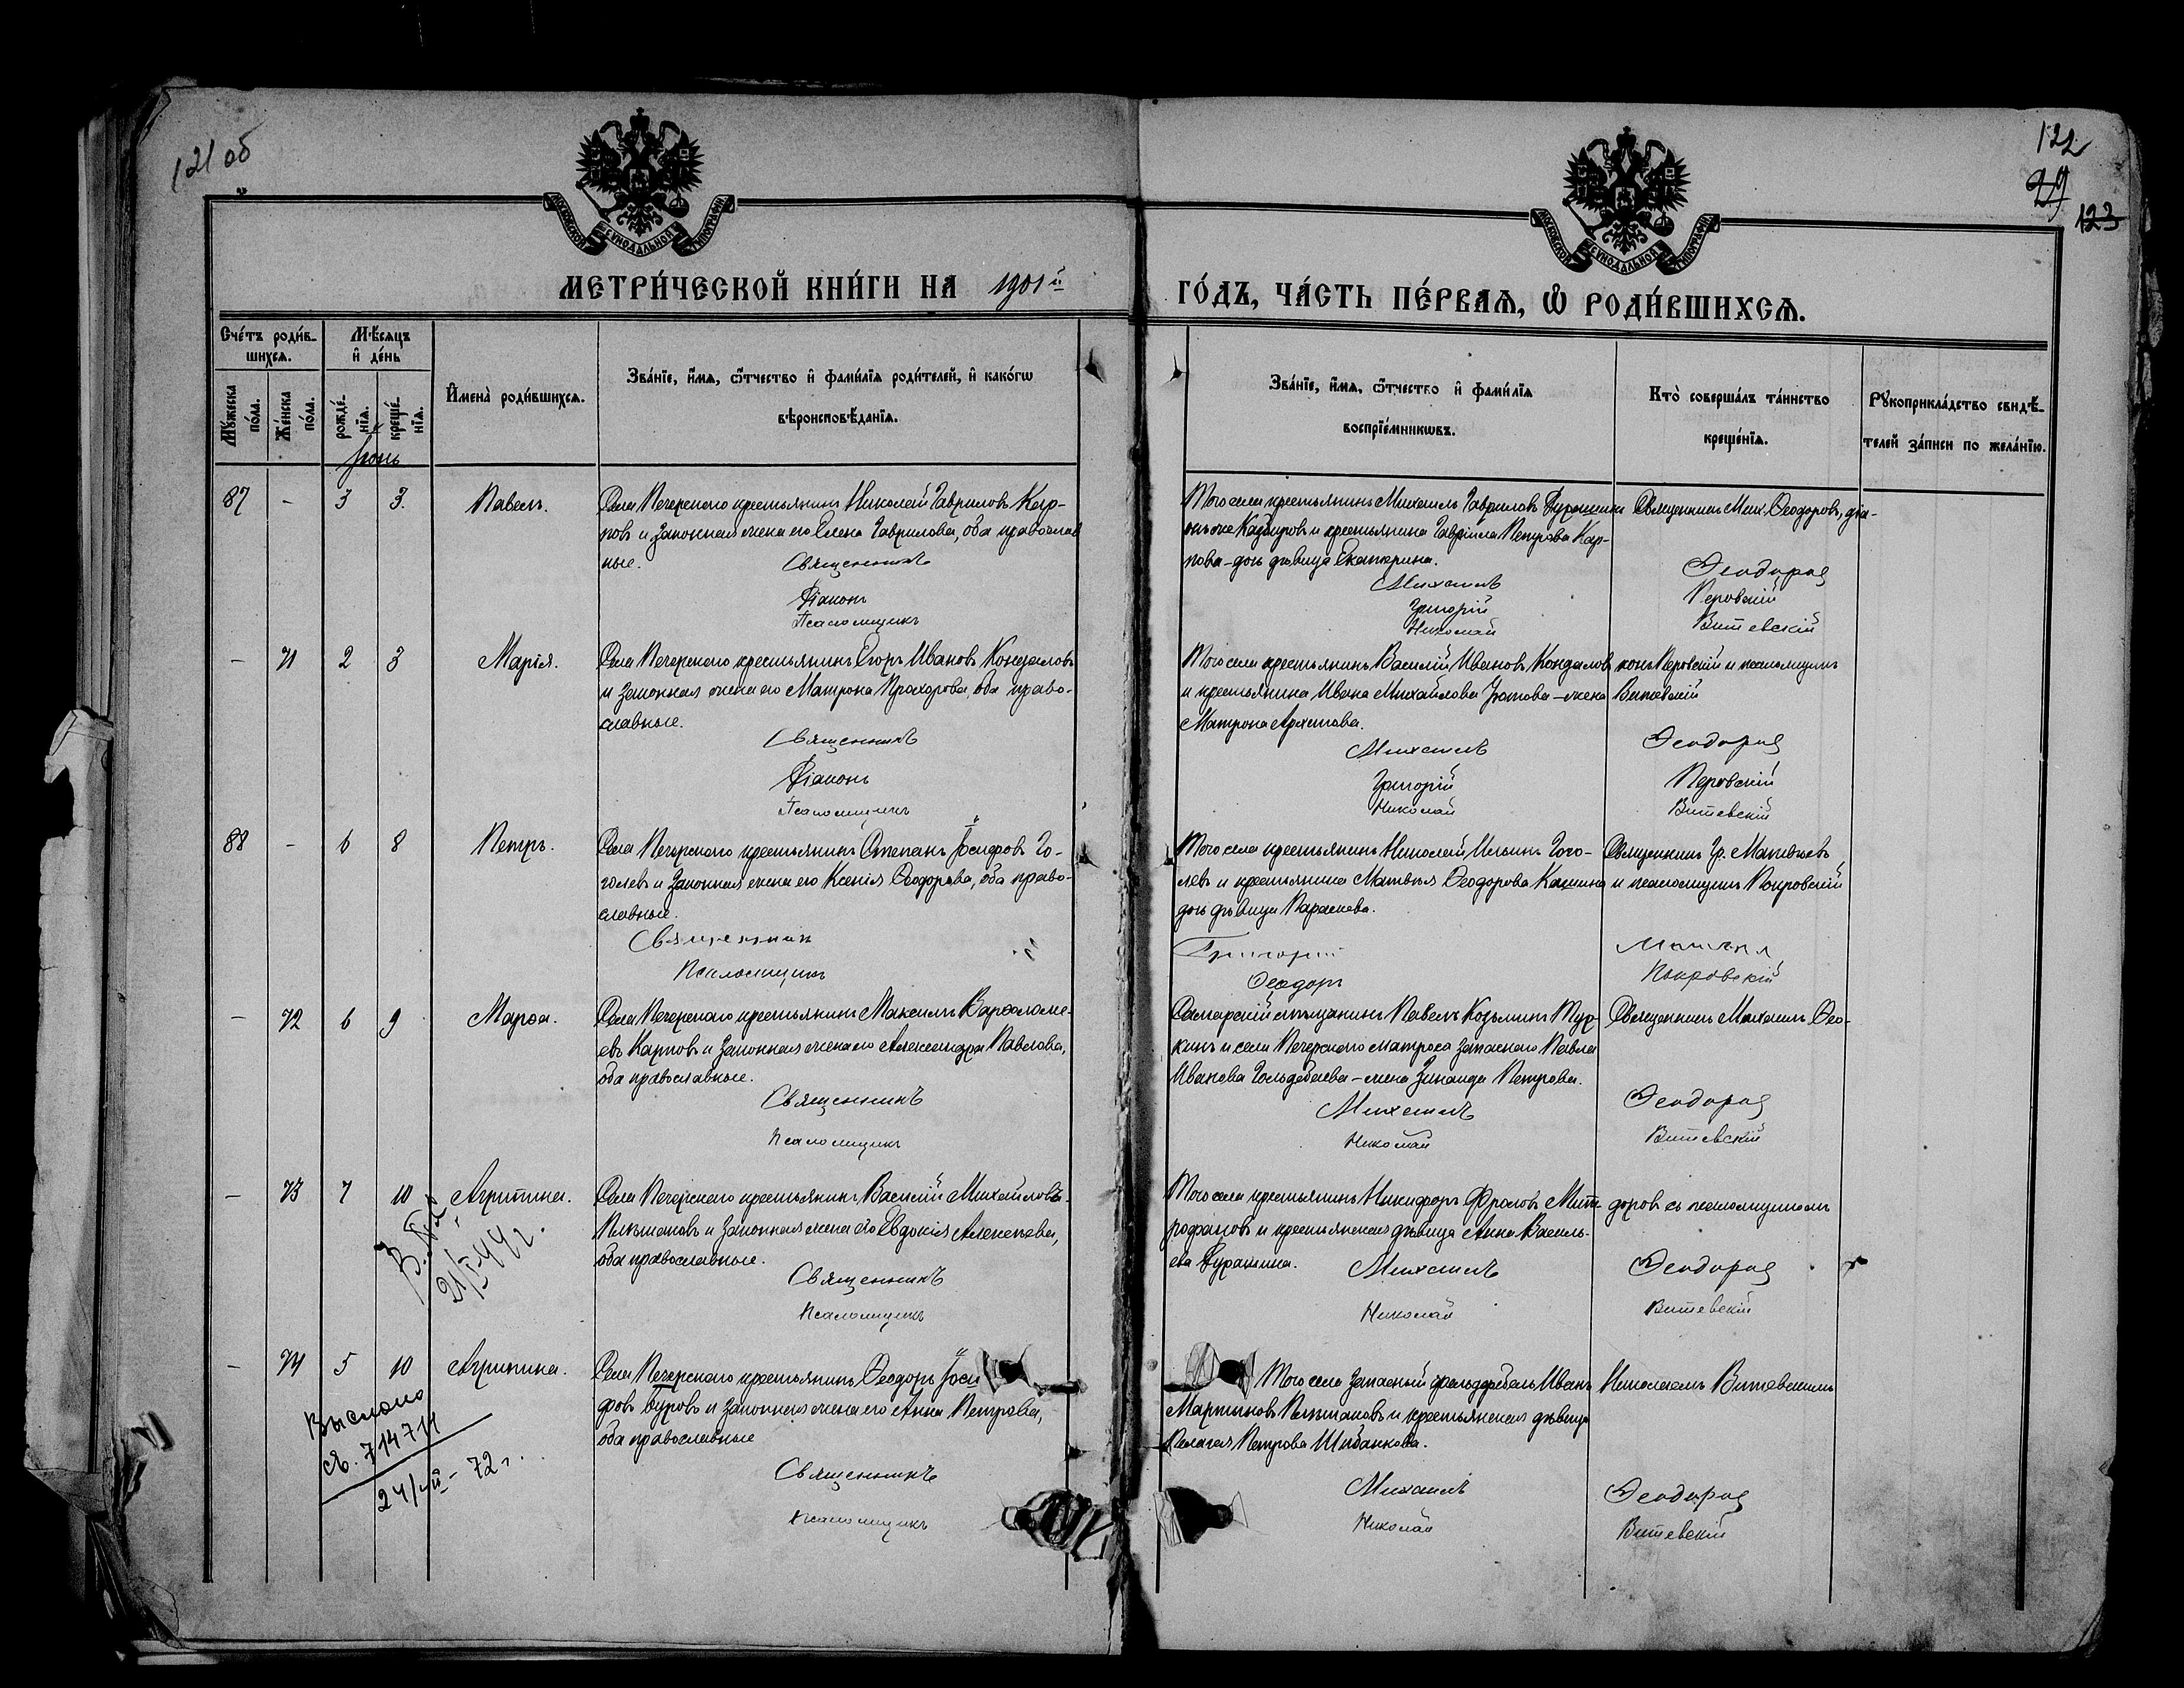 121 об
122
29
123
МОСКОВСКОЙ СУНОДАЛЬНОЙ ТИПОГРАФІИ
МОСКОВСКОЙ СУНОДАЛЬНОЙ ТИПОГРАФІИ
МЕТРИ́ЧЕСКОЙ КНИ́ГИ НА 1901й
ГО́ДЪ, ЧА́СТЬ ПЕ́РВАѦ, Ѡ҆ РОДИ́ВШИХСѦ.
Сче́тъ роди́в-
шихсѧ.
Мꙋ́жеска по́ла.
Же́нска по́ла.
Мѣ́сѧцъ
и҆ де́нь
рожде́-
нїѧ.
креще́-
нїѧ.
Іюнь
И҆мена̀ роди́вшихсѧ.
Зва́нїе, и҆́мѧ, ѻ҆́тчество и҆ фами́лїѧ роди́телей, и҆ како́гѡ
вѣроисповѣ́данїѧ.
Зва́нїе, и҆́мѧ, ѻ҆́тчество и҆ фами́лїѧ
воспрїе́мникѡвъ.
Кто̀ соверша́лъ та́инство
креще́нїѧ.
Рꙋкоприкла́дство свидѣ́-
телей за́писи по жела́нїю.
87 - 3 3. Павелъ.
Села Печерскаго крестьянинъ Николай Гавриловъ Кар-
повъ и законная жена его Елена Гаврилова, оба православ
ные.
Священникъ
Діаконъ
Псаломщикъ
Того села крестьянинъ Михаилъ Гавриловъ
и крестьянина Гавріила Петрова Кар-
пова - дочь дѣвица Екатерина.
Михаилъ
Григорій
Николай
Священникъ Мих. Ѳеодоровъ, діа-
Ѳеодоров
Перовскій
Витевскій
- 71 2 3 Марія.
Села Печерскаго крестьянинъ Егоръ Ивановъ Кондаловъ
и законная жена его Матрона Прохорова, оба право-
славные.
Священникъ
Діаконъ
Псаломщикъ
Того села крестьянинъ Василій Ивановъ Кондаловъ
и крестьянина Ивана Михайлова - жена
Матрона Архипова.
Михаилъ
Григорій
Николай
конъ Перовскій и псаломщикъ
Витевскій
Ѳеодоров
Перовскій
Витевскій
88 - 6 8 Петръ.
Села Печерскаго крестьянинъ Степанъ Іосифовъ Го-
голевъ и законная жена его Ксенія Ѳеодорова, оба право-
славные.
Священникъ
Псаломщикъ
Того села крестьянинъ Николай Ильинъ Гого-
левъ и крестьянина Матвѣя Ѳеодорова Кашина
дочь дѣвица Параскева.
Григорій
Ѳеодоръ
Священникъ Гр. Матвѣевъ
и псаломщикъ Покровскій
Покровскій
- 72 6 9 Марѳа.
Села Печерскаго крестьянинъ Максимъ Варѳоломе-
евъ Карповъ и законная жена его Александра Павлова,
оба православные.
Священникъ
Псаломщикъ
Самарскій мѣщанинъ Павелъ Козьминъ Тур-
кинъ и села Печерскаго матроса запаснаго Павла
Иванова Гольдебаева - жена Зинаида Петрова.
Михаилъ
Николай
Священникъ Михаилъ Ѳео-
Ѳеодоров
Витевскій
- 73 7 10 Агрипина.
21/I-44 г.
Села Печерскаго крестьянинъ Василій Михайловъ
Пильщиковъ и законная жена его Евдокія Алексѣева,
оба православные.
Священникъ
Псаломщикъ
Того села крестьянинъ Никифоръ Фроловъ Мит-
рофановъ и крестьянская дѣвица Анна Василь-
ева Бурашина.
Михаилъ
Николай
доровъ съ псаломщикомъ
Ѳеодоров
Витевскій
- 74 5 10 Агрипина.
Выслано
св. 714711
24/VII - 72 г.
Села Печерскаго крестьянинъ Ѳеодоръ Іоси
фовъ Буровъ и законная жена его Анна Петрова,
оба православные
Священникъ
Псаломщикъ
Того села запасный фельдфебель Иванъ
Мартыновъ Пильщиковъ и крестьянская дѣвица
Пелагея Петрова Шибанкова.
Михаилъ
Николай
Николаемъ Витевскимъ
Ѳеодоров
Витевскій